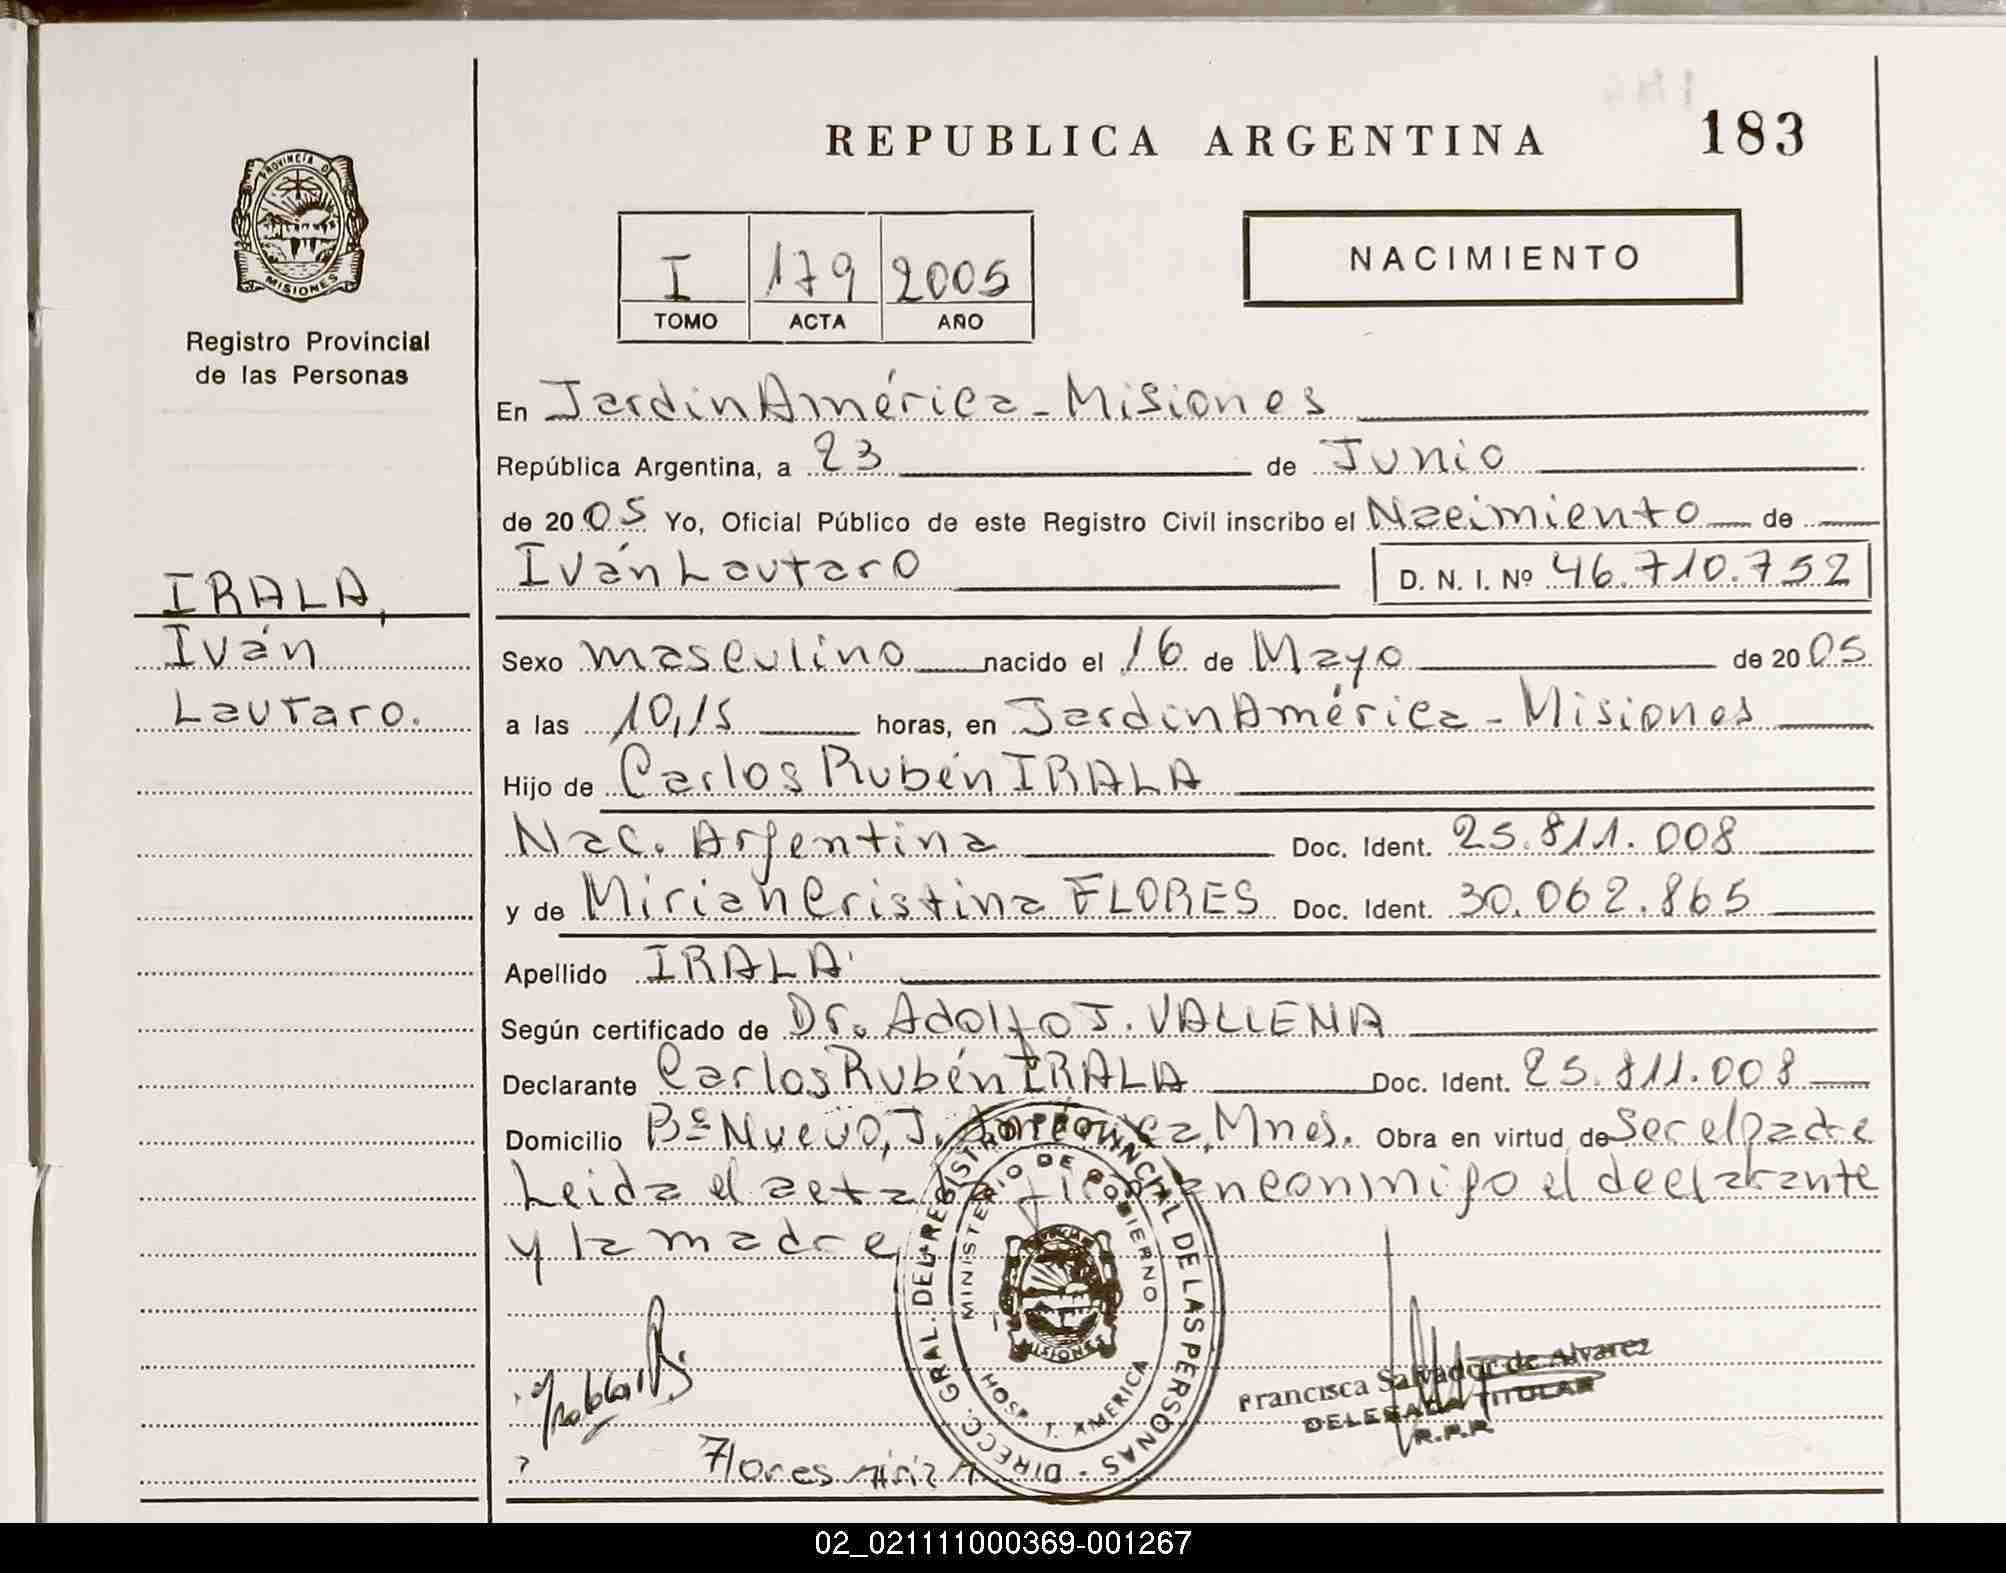 REPUBLICA ARGENTINA 183
PROVINCIA DE
MISIONES
Registro Provincial
de las Personas
NACIMIENTO
I 179 2005
TOMO ACTA AÑO
IRALA,
Iván
Lautaro.
En Jardin América - Misiones
República Argentina, a 23 de Junio
de 2005 Yo, Oficial Público de este Registro Civil inscribo el Nacimiento de
Iván Lautaro D. N. I. Nº 46.710.752
Sexo masculino nacido el 16 de Mayo de 2005
a las 10,15 horas, en Jardin América - Misiones
Hijo de Carlos Rubén IRALA
Nac. Argentina Doc. Ident. 25.811.008
y de Mirian Cristina FLORES Doc. Ident. 30.062.865
Apellido IRALA
Según certificado de Dr. Adolfo J. VALLEMA
Declarante Carlos Rubén IRALA Doc. Ident. 25.811.008
Domicilio Bº Nuevo, J. América, Mnes. Obra en virtud de Ser el padre
Leida el acta firman conmigo el declarante
y la madre
DIRECC. GRAL. DEL REGISTRO PROVINCIAL DE LAS PERSONAS
MINISTERIO DE GOBIERNO
MISIONES
HOSP. J. AMERICA
Francisca Salvador de Alvarez
DELEGADA TITULAR
R.P.P.
Flores Mirian
02_021111000369-001267